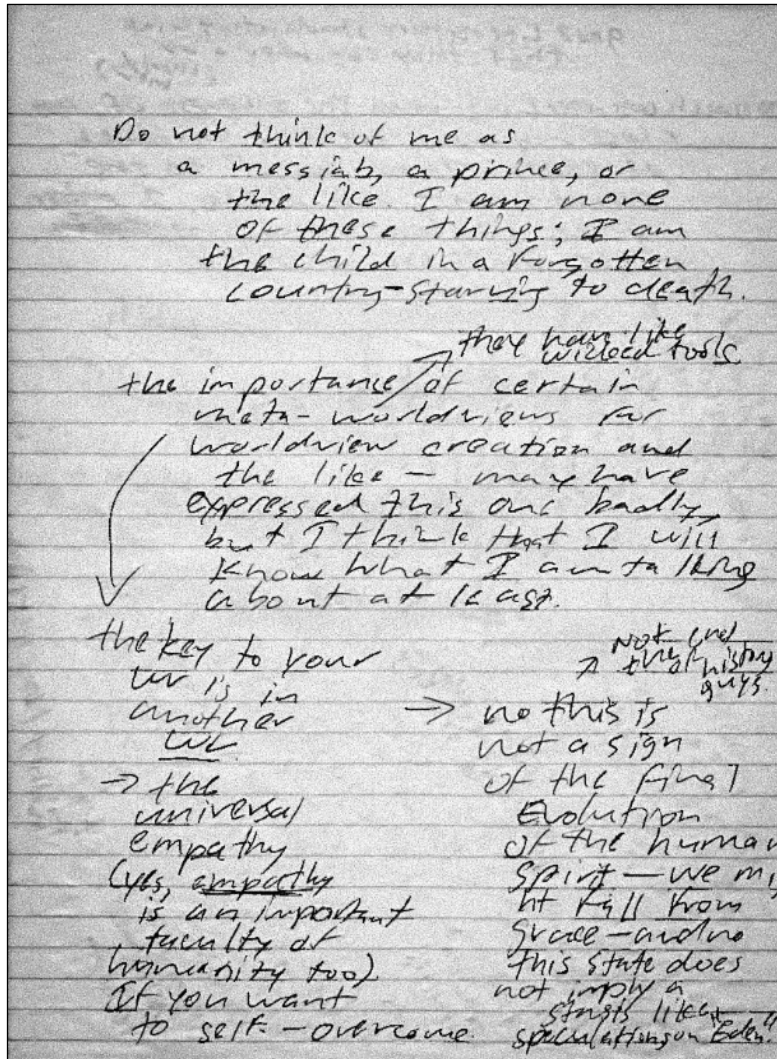 Do not think of me as
a messiah, a prince, or
the like. I am none
of these things; I am
the child in a forgotten
country-starving to death.
they have like
wicked tools
the importance of certain
meta-worldviews for
worldview creation and
the like — may have
expressed this one badly,
but I think that I will
know what I am talking
about at least.
the key to your
wv is in
another
wv
→ the
universal
empathy
(yes, empathy
is an important
faculty of
humanity too)
If you want
to self-overcome.
Not end
the of history
guys.
→ no this is
not a sign
of the final
Evolution
of the human
spirit — we mig
ht fall from
grace — and no
this state does
not imply a
stasis like
speculations on "Eden"